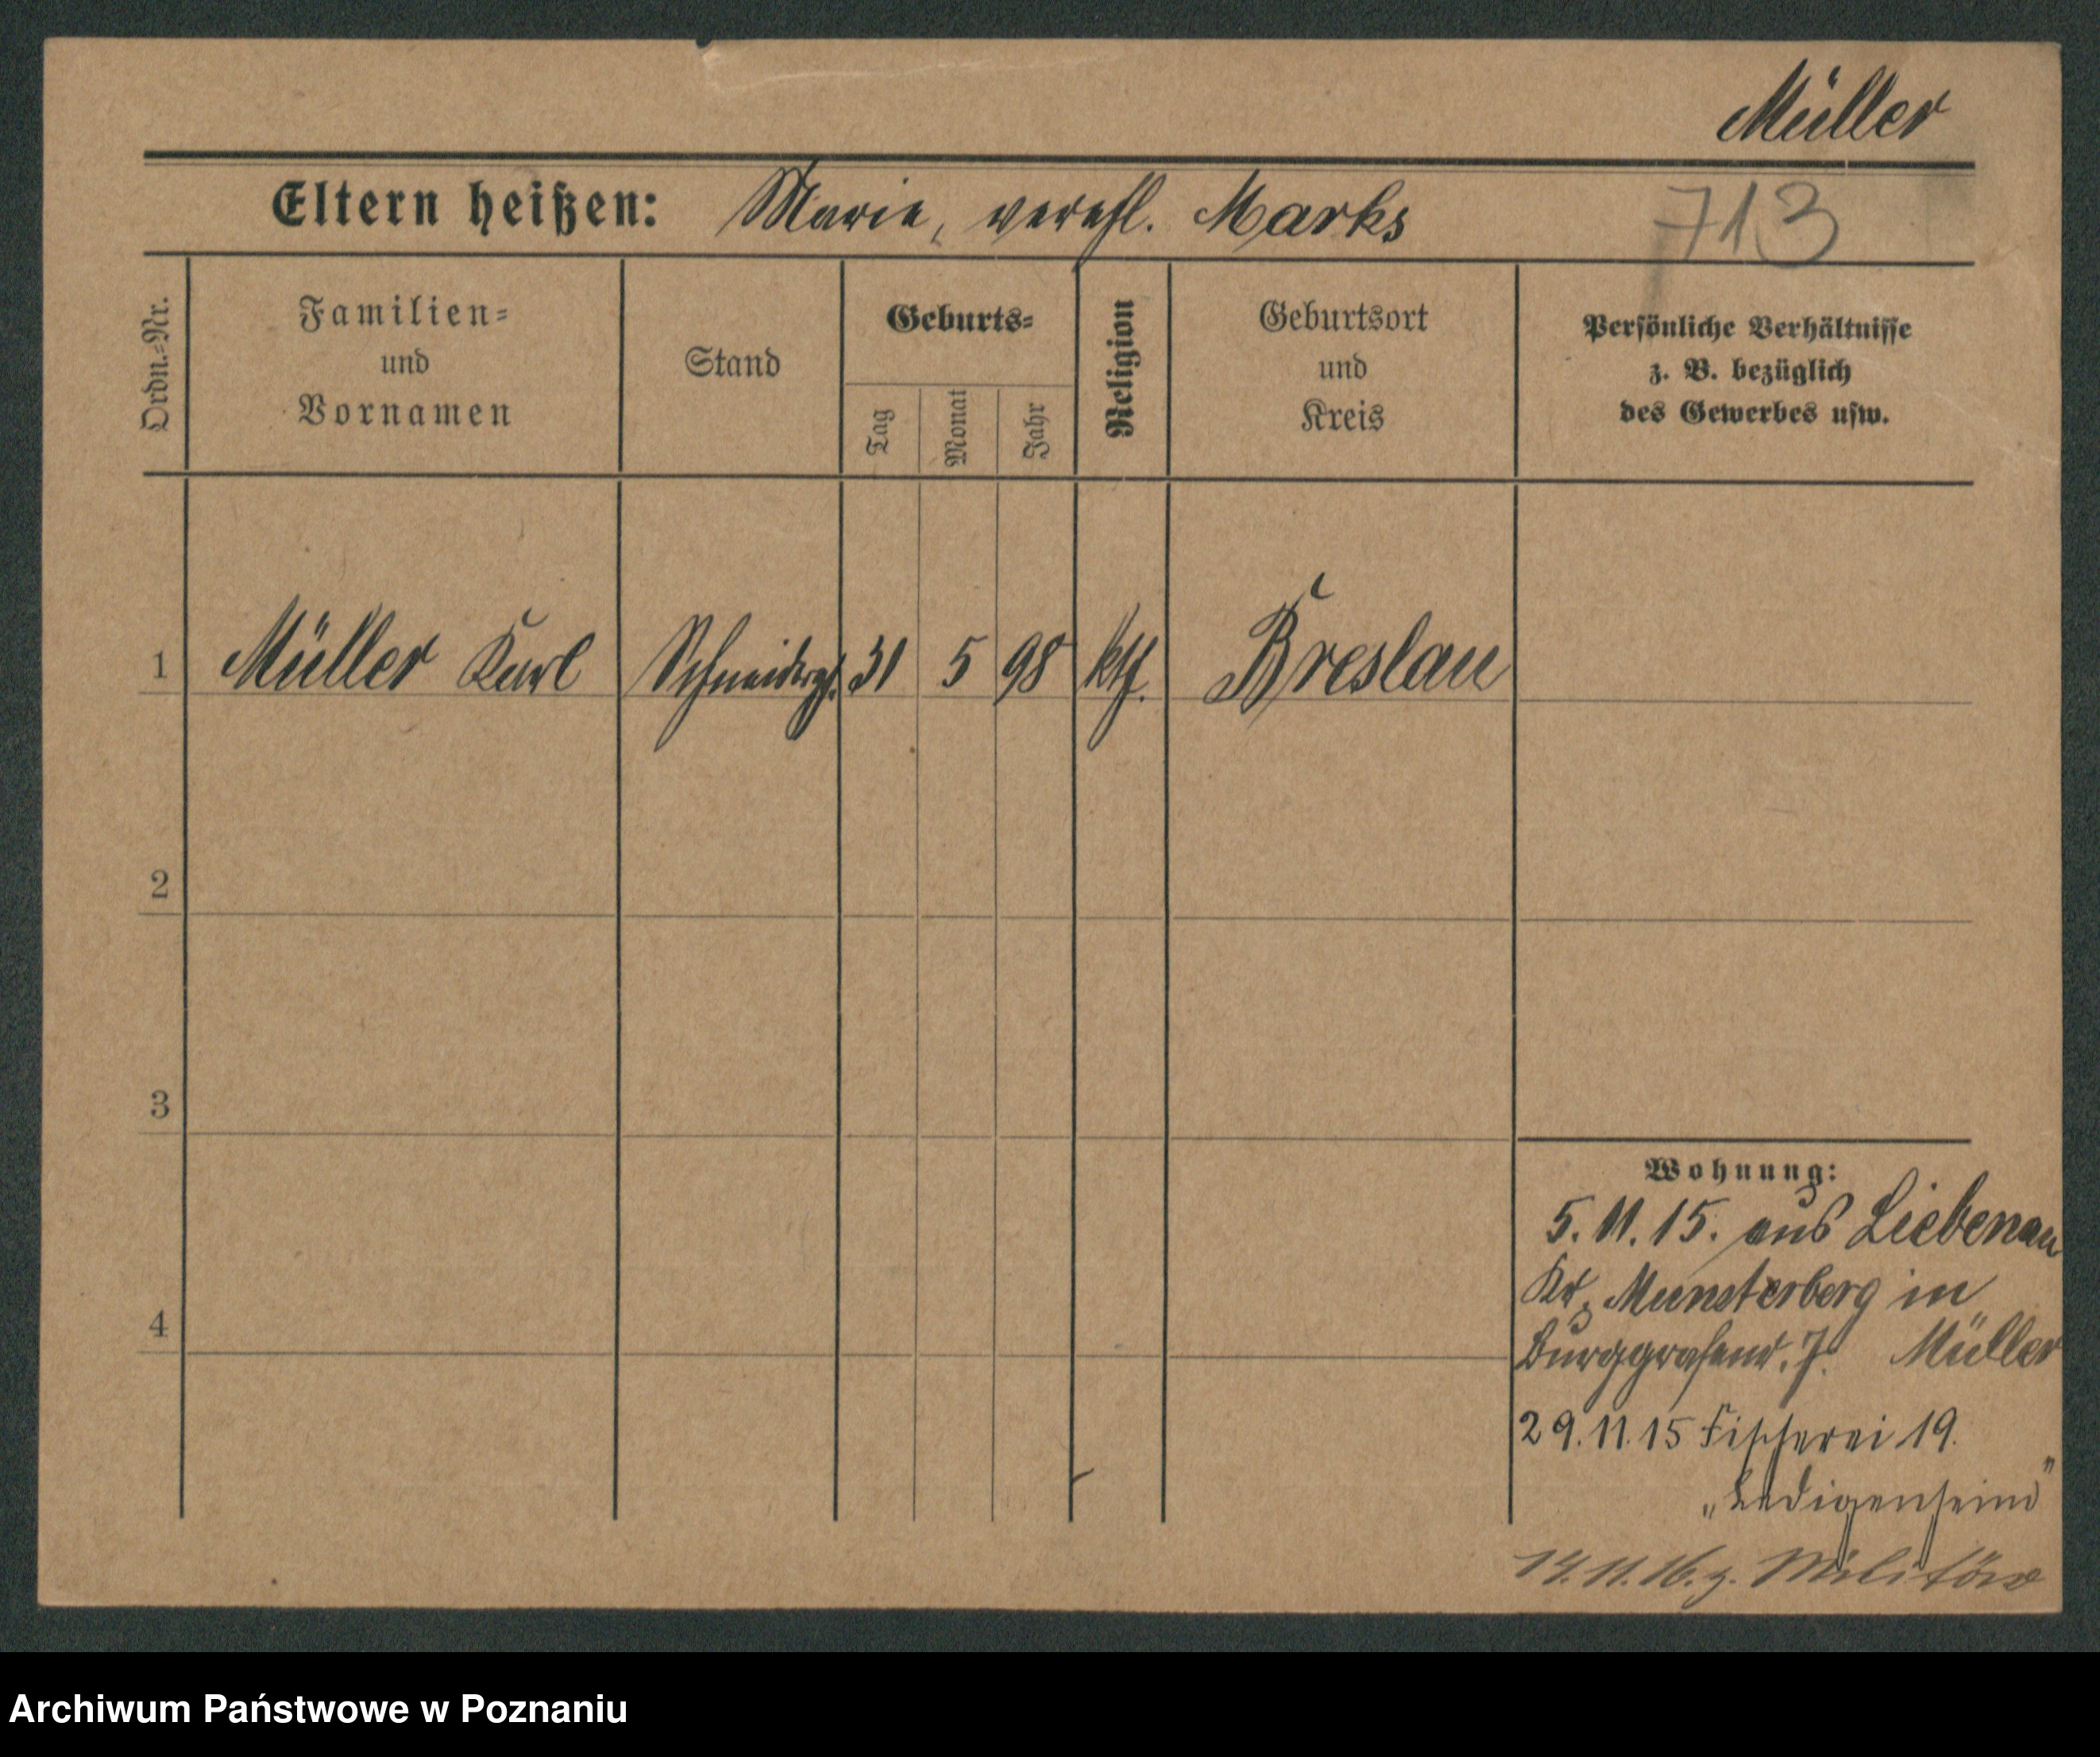 Müller
Eltern heißen: Marie, verehl. Marks
713
Ordn.=Nr.
Familien=
und
Vornamen
Stand
Geburts=
Tag
Monat
Jahr
Religion
Geburtsort
und
Kreis
Persönliche Verhältnisse
z. B. bezüglich
des Gewerbes usw.
1 Müller Karl Schneiderges. 31 5 98 kth. Breslau
2
3
4
Wohnung:
5.11.15. aus Liebenau
Kr. Munsterberg in
Burggrafenr. 7. Müller
29.11.15 Fischerei 19.
„Ledigenheim"
14.11.16. z. Militär
Archiwum Państwowe w Poznaniu